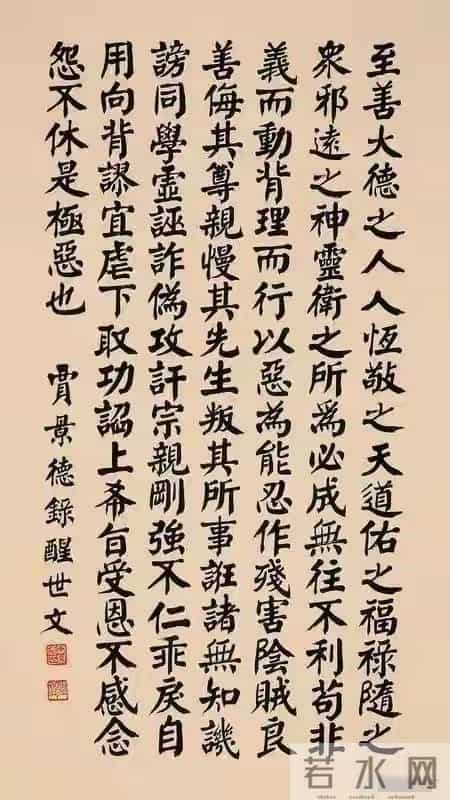 至善大德之人人恆敬之天道佑之福祿隨之
衆邪遠之神靈衛之所爲必成無往不利苟非
義而動背理而行以惡為能忍作殘害陰賊良
善侮其尊親慢其先生叛其所事誑諸無知譏
謗同學虛誣詐偽攻訐宗親剛強不仁乖戾自
用向背謬宜虐下取功謟上希旨受恩不感念
怨不休是極惡也
賈景德錄醒世文
若水网